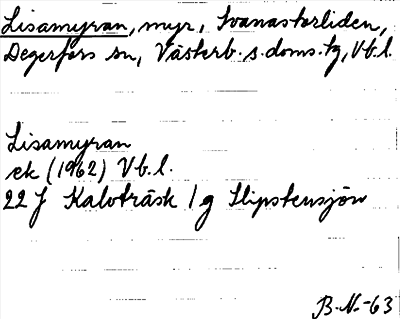 Lisamyran, myr, Svanastarliden,
Degerfors sn, Västerb. s. doms. tg, Vb. l.
Lisamyran
ek (1962) Vb. l.
22 J Kalvträsk / g Slipstensjön
B. N. -63